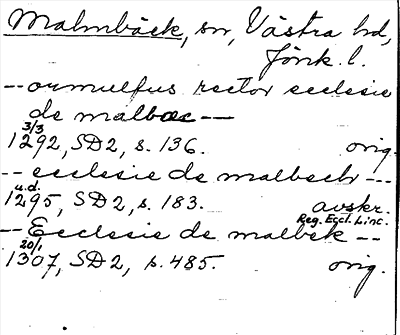 Malmbäck, sn, Västra hd,
Jönk. l.
-- ormulfus rector ecclesie
de malbæc --
3/3
1292, SD2, s. 136. orig.
-- ecclesie de malbech --
u.d.
1295, SD2, s. 183. avskr.
Reg. Eccl. Linc.
-- Ecclesie de malbek --
20/1
1307, SD2, s. 485. orig.